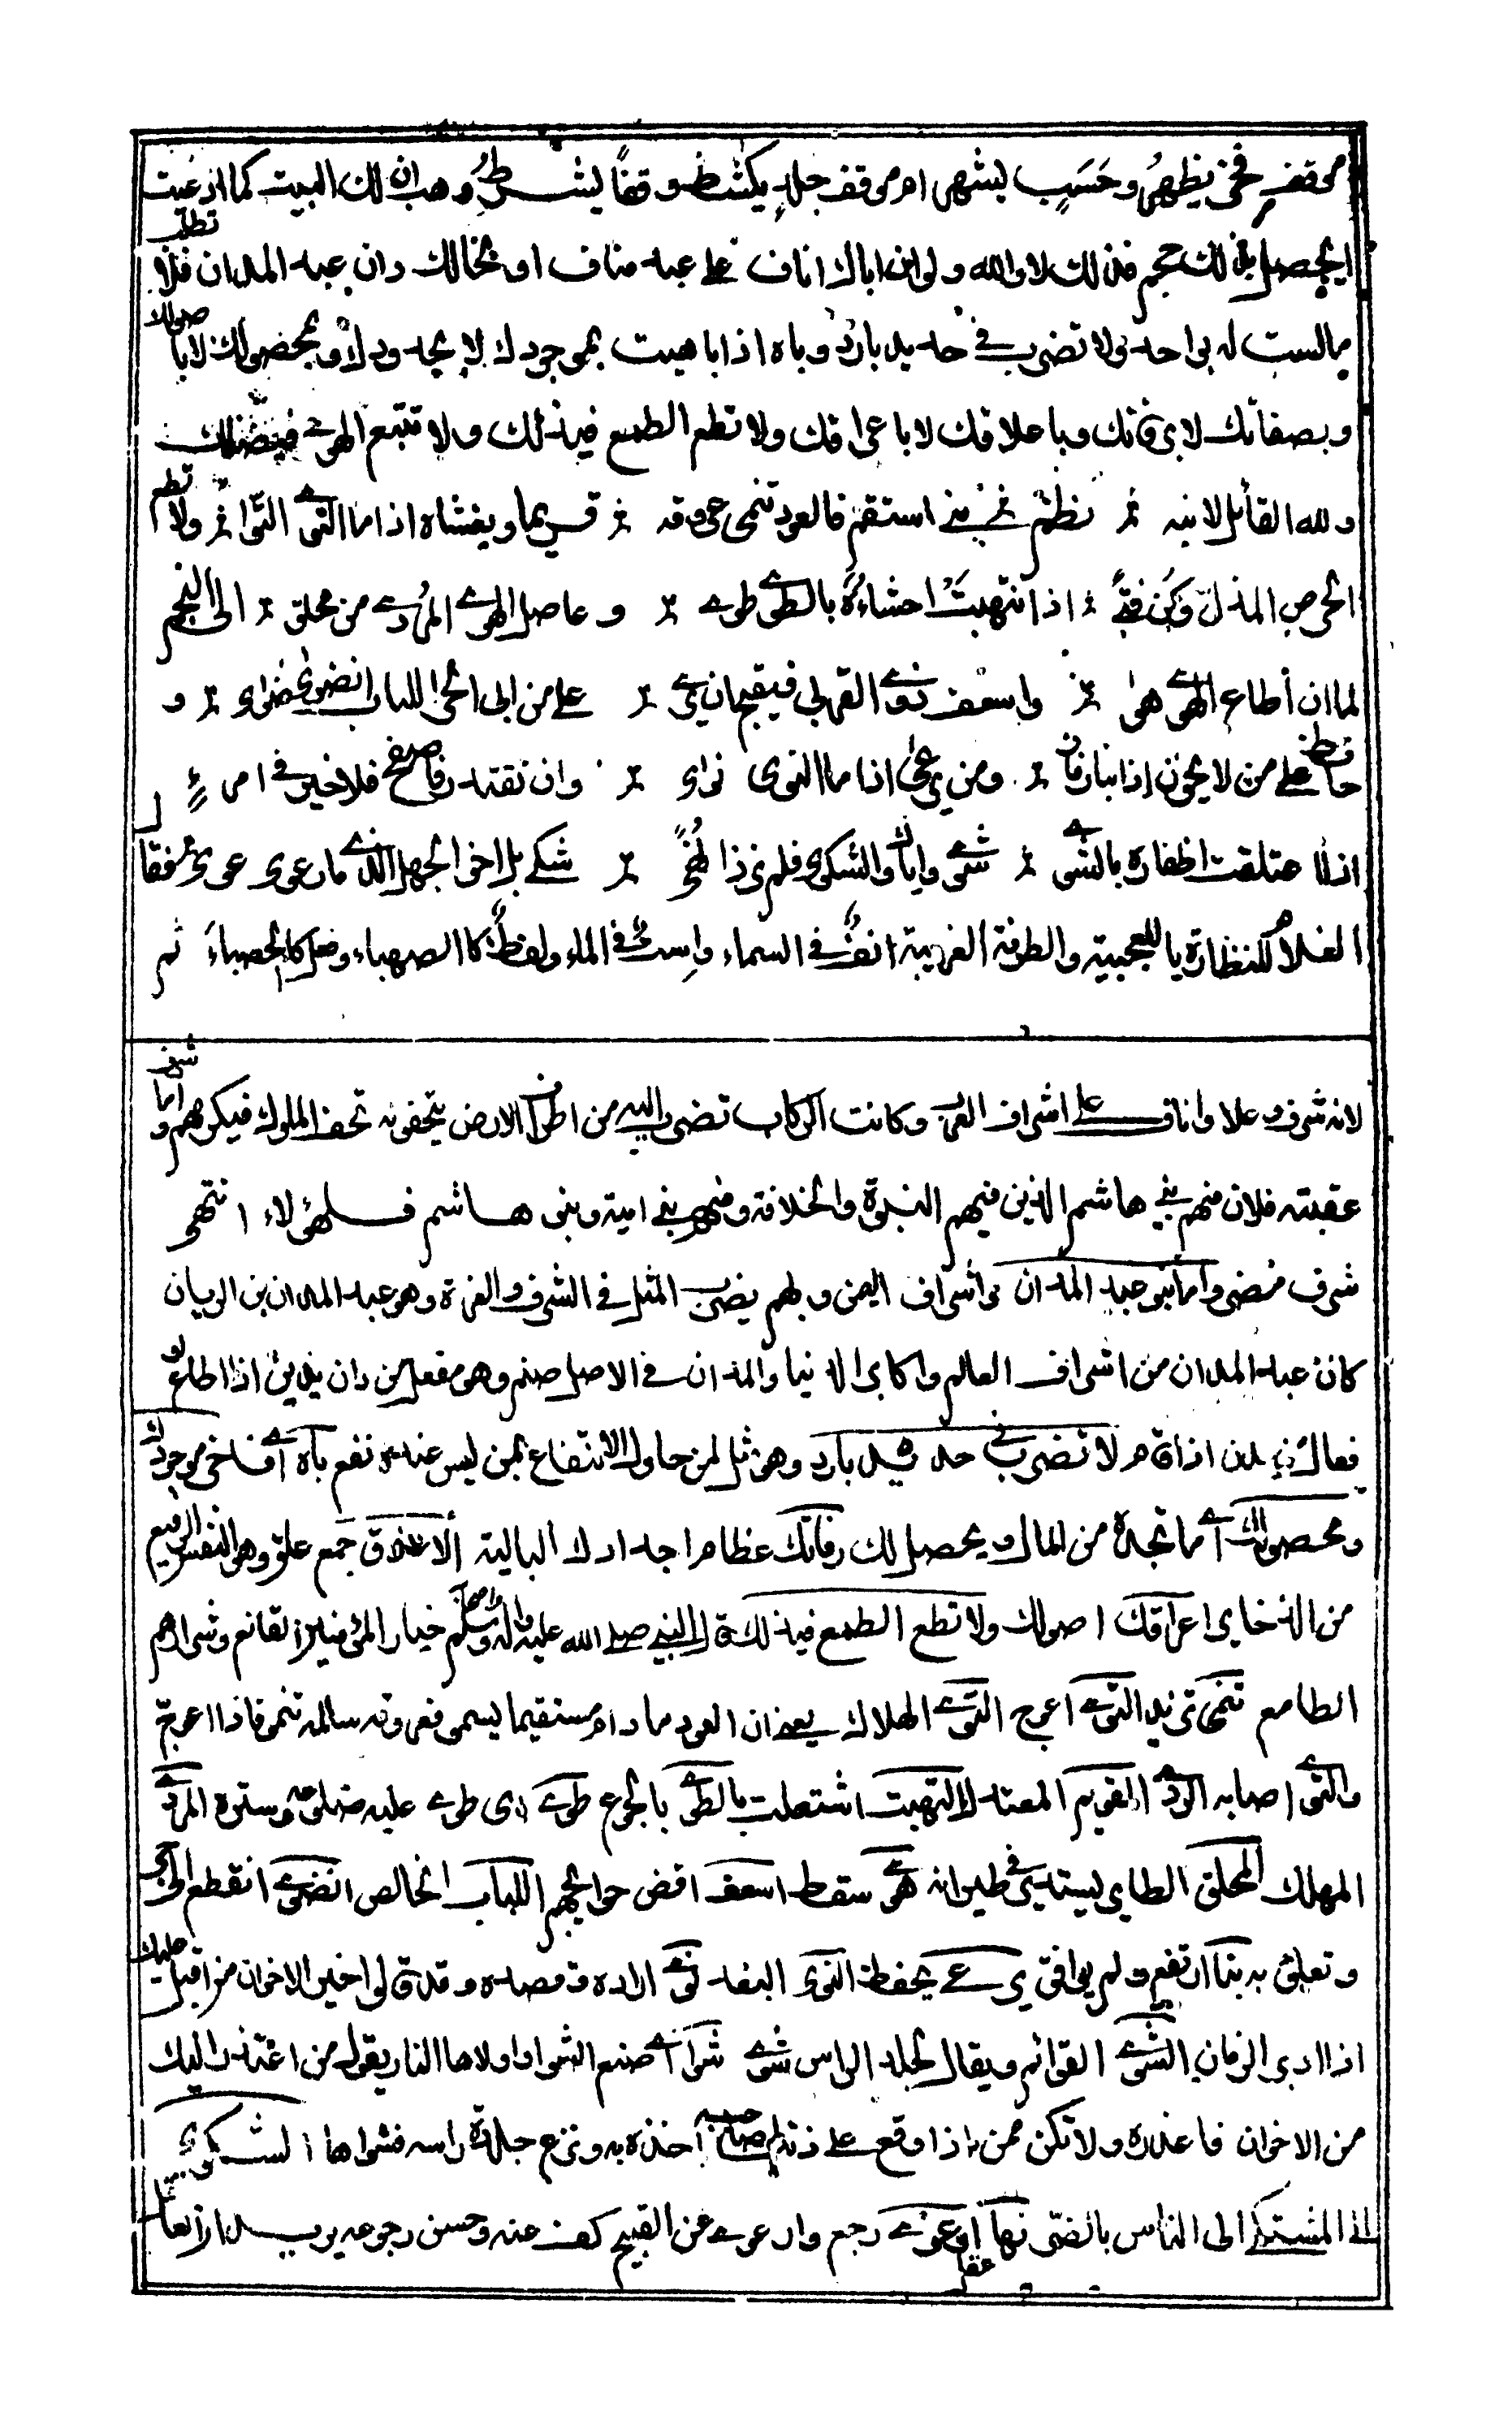 موقف فخر يظهر وحسب يشهر ام موقف جلد يكشط وقفا يشرط وهب ان لك البيت كما ادعيت
ايحصل بذلك حجم قذالك لا والله ولو ان اباك اناف على عبد مناف او لخالك دان عبد المدان فلا
يمالست له بواحد ولا تضرب في حديد بارد وباه اذا باهيت بموجودك لا بجدودك وبمحصولك لا باصولك
وبصفاتك لا برفاتك وباعلاقك لا باعراقك ولا تطع الطمع فيذلك ولا تتبع الهوى فيضلك
ولله القائل لابنه نظم بني استقم فالعود تنمى عروقه قويما ويغشاه اذا ما التوى التوا ولا تطع
الحرص المذل وكن فتى اذا التهبت احشاءه بالطوى طوى وعاص الهوى المردى من محلق الى النجم
لما ان أطاع الهوى هوى واسعف ذوى القربى فيقبح ان يرى على من الى الحر اللباب انضوى ضوى و
حافظ على من لا يخون اذا نبا زمان ومن يرعى اذا ما النوى نوى وان تقتدر فاصفح فلا خير في امرء
اذا اعتلقت اظفاره بالشوى شوى واياك والشكوى فلم نر ذا نهى شكى بل اخو الجهل الذى ما رعوى عوى فقال
الغلام للنظارة يا للعجيبة والطرفة الغريبة انف في السماء واست في الماء ولفظ كالصهباء وفعل كالحصباء ثم
لانه شرف وعلا واناف على اشراف العرب وكانت الركاب تضرب اليه من اطراف الارض يتحفونه تحف الملوك فيكرمهم واما شرف
عقبته فلان منهم بني هاشم الذين فيهم النبوة والخلافة ومنهم بني امية وبنى هاشم فـلهؤلاء انتهى
شرف مضر واما بنو عبد المدان فاشراف اليمن وبهم يضرب المثل في الشرف والعزة وهو عبد المدان بن الديان
كان عبد المدان من اشراف العالم واكابر الدنيا والمدان في الاصل صنم وهو مفعل من دان يدين اذا اطاع
فعال لا تضرب في حديد بارد وهو مثل لمن حاول الانتفاع بمن ليس عنده نفع باه أى فاخر موجودك
ومحصولك أى ما تجده من المال ويحصل لك رفاتك عظام اجدادك البالية الاعلاق جمع علق وهو النفيس الرفيع
من الذخاير اعراقك اصولك ولا تطع الطمع فيذلك قال النبي صلى الله عليه وآله وسلم خيار المؤمنين القانع وشرارهم
الطامع تنمى تزيد التوى اعوج التوى الهلاك يعنى ان العود ما دام مستقيما يسمى فعروقه سالمه تنمو فاذا اعوج
والتوى اصابه التوى القويم المعتدل التهبت اشتعلت بالطوى بالجوع طوى اى طوى عليه ضلوعه وستره المردى
المهلك المحلق الطاير يستدير في طيرانه هوى سقط اسعف اقض حوايجهم اللباب الخالص انضوى انقطع الى الحر
وتعلق به نبا ارتفع ولم يوافق يرعى يحفظ النوى البعد نوى اراده وقصده وقد قالوا خير الاخوان من اقبل عليك
اذا ادبر الزمان الشوى القوائم ويقال لجلد الراس شوى شوى أى صنع الشوا واولاها النار يقول من اعتذر اليك
من الاخوان فاعذره ولا تكن ممن اذا وقع على ذنب صاحبه اخذه به ونزع جلدة راسه فشواها الشكوى
المشتكى الى الناس بالضر نهى اى عقل ارعوى رجع وارعوى عن القبيح كف عنه وحسن رجوعه